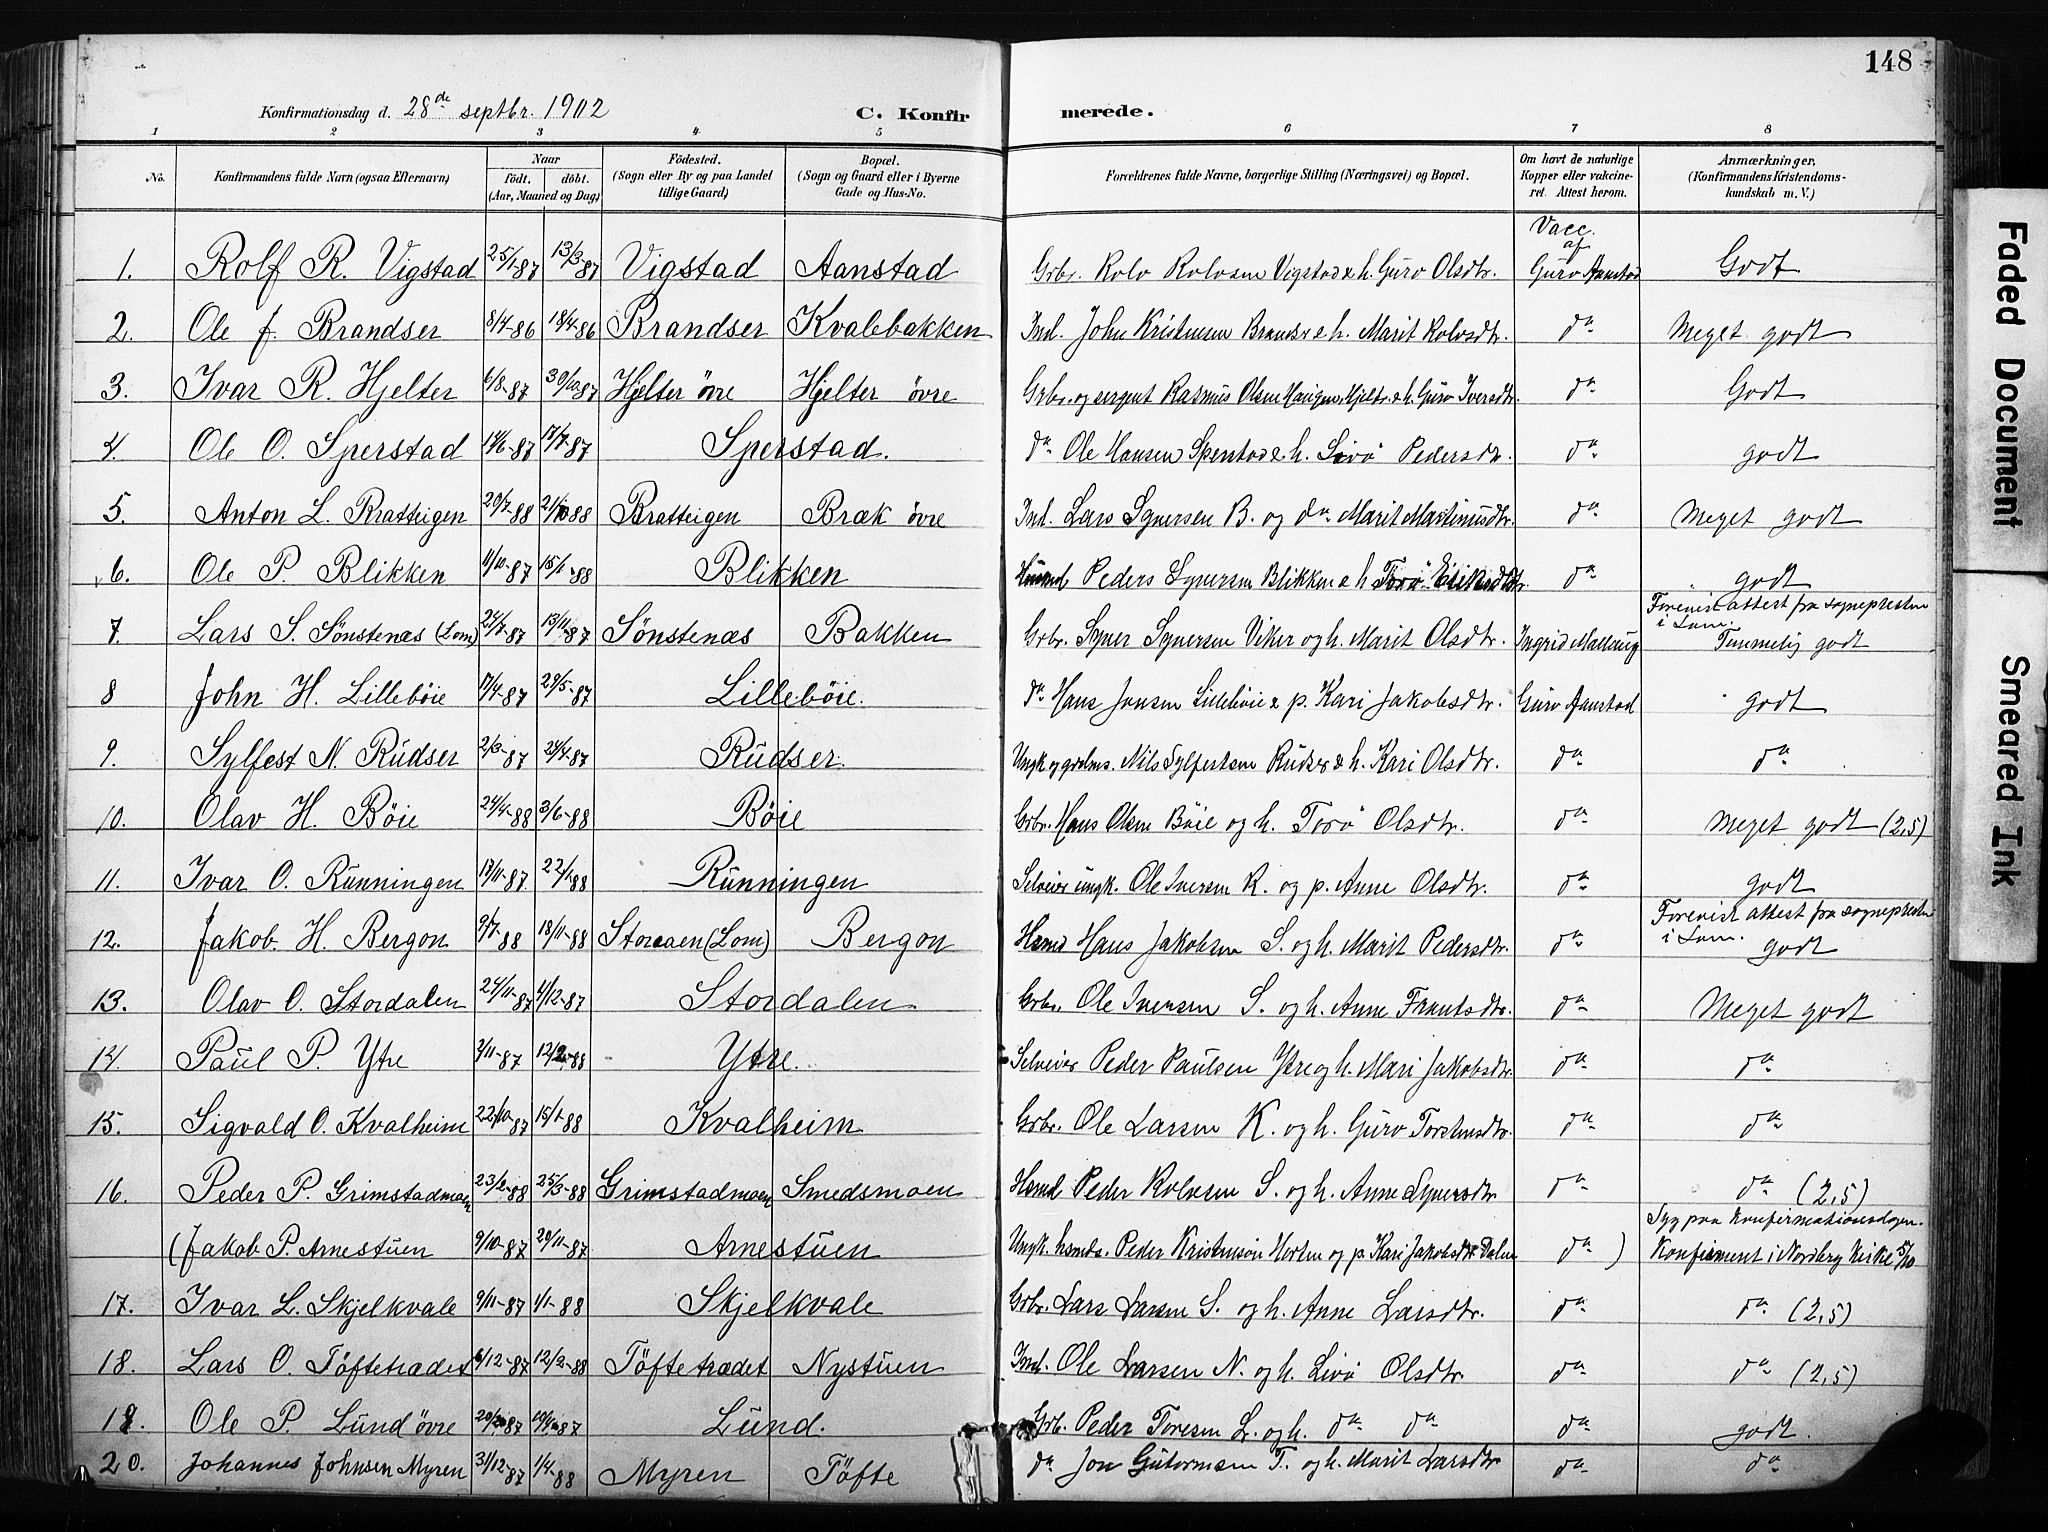 148
Konfirmationsdag d. 28de septbr. 1902 C. Konfirmerede.
1 2 3 4 5 6 7 8
No. Konfirmandens fulde Navn (ogsaa Efternavn) Naar født. døbt. (Aar, Maaned og Dag) Födested. (Sogn eller By og paa Landet tillige Gaard) Bopæl. (Sogn og Gaard eller i Byerne Gade og Hus-No. Forældrenes fulde Navne, borgerlige Stilling (Næringsvei) og Bopæl. Om havt de naturlige Kopper eller vakcineret. Attest herom. Anmærkninger, (Konfirmandens Kristendomskundskab m. V.)
1. Rolf R. Vigstad 25/1-87 13/3-87 Vigstad Aanstad Grbr. Rolv Rolvsen Vigstad & h. Guro Olsdtr. Vacc. af Guro Aanstad Godt
2. Ole J. Brandser 8/4-86 18/4-86 Brandser Kvalebakken Ind. John Kristensen Brandsr & h. Marit Rolvsdtr. do Meget godt
3. Ivar R. Hjelter 6/8-87 30/10-87 Hjelter övre Hjelter övre Grbr. og sergent Rasmus Olsen Haugen, Hjeltr. & h. Guro Iversdtr. do Godt
4. Ole O. Sperstad 14/6-87 17/7-87 Sperstad. do Ole Hansen Sperstad & h. Livó Pedersdtr. do godt
5. Anton L. Bratteigen 20/7-88 21/10-88 Bratteigen Bræk övre Ind. Lars Synersen B. og do Marit Martinusdtr. do Meget godt
6. Ole P. Blikken 11/10-87 15/1-88 Blikken Peders Synersen Blikken & h. Toró Eriksdtr. do godt
7. Lars S. Sönstenæs (Lom) 24/7-87 13/11-87 Sönstenæs Bakken Grbr. Syner Synersen Viker og h. Marit Olsdtr. Ingrid Forevist attest fra sognepresten i Lom. Temmelig godt
8 John H. Lillebøie 17/4-87 29/5-87 Lillebøie. do Hans Jonsen Lillebøie & p. Kari Jakobsdtr. Guro Aanstad godt
9. Sylfest N. Rudser 2/3-87 24/4-87 Rudser Ungk og grdms. Nils Sylfestsen Rudser & h. Kari Olsdtr. do do
10. Olav H. Bøie 24/4-88 3/6-88 Bøie Grbr. Hans Olsen Bøie og h. Toró Olsdtr. do Meget godt (2,5)
11. Ivar O. Runningen 13/11-87 22/1-88 Runningen Selveier ungk. Ole Iversen R. og p. Anne Olsdtr. do godt
12. Jakob. H. Bergon 9/7-88 18/11-88 Storaaen (Lom) Bergon Hsmd Hans Jakobsen S. og h. Marit Pedersdtr. do Forevist attest fra sognepresten i Lom. godt
13. Olav O. Stordalen 24/11-87 4/12-87 Stordalen Grbr. Ole Iversen S. og h. Anne Frantsdtr. do Meget godt
14. Paul P. Ytre 2/11-87 12/2-88 Ytre. Selveier Peder Paulsen Ytre og h. Mari Jakobsdtr. do do
15. Sigvald O. Kvalheim 22/10-87 15/1-88 Kvalheim Grbr. Ole Larsen K. og h. Guro Torstensdtr. do do
16. Peder P. Grimstadmoen 23/2-88 25/3-88 Grimstadmoen Smedsmoen Hsmd Peder Rolvsen S. og h. Anne Synersdtr. do do (2,5)
(Jakob P. Arnestuen 9/10-87 20/11-87 Arnestuen Ungk. hsmds. Peder Kristensen og p. Kari Jakobsdtr. Dalen do ) Syg paa Konfirmationsdagen. Konfirment i Nordberg kirke 5/10
17. Ivar L. Skjelkvale 9/11-87 1/1-88 Skjelkvale Grbr. Lars Larsen S. og h. Anne Larsdtr. do do (2,5)
18. Lars O. Töftetrædet 6/12-87 12/2-88 Töftetrædet Nystuen Ind. Ole Larsen N. og h. Livó Olsdtr. do do (2,5)
19. Ole P. Lund övre 20/2-87 10/4-87 Lund. Grb. Peder Toresen L. og h. do do do godt.
20. Johannes Johnsen Myren 31/12-87 1/4-88 Myren Töfte do Jon Gutormsen T. og h. Marit Larsdtr do do
Faded Document
Smeared Ink